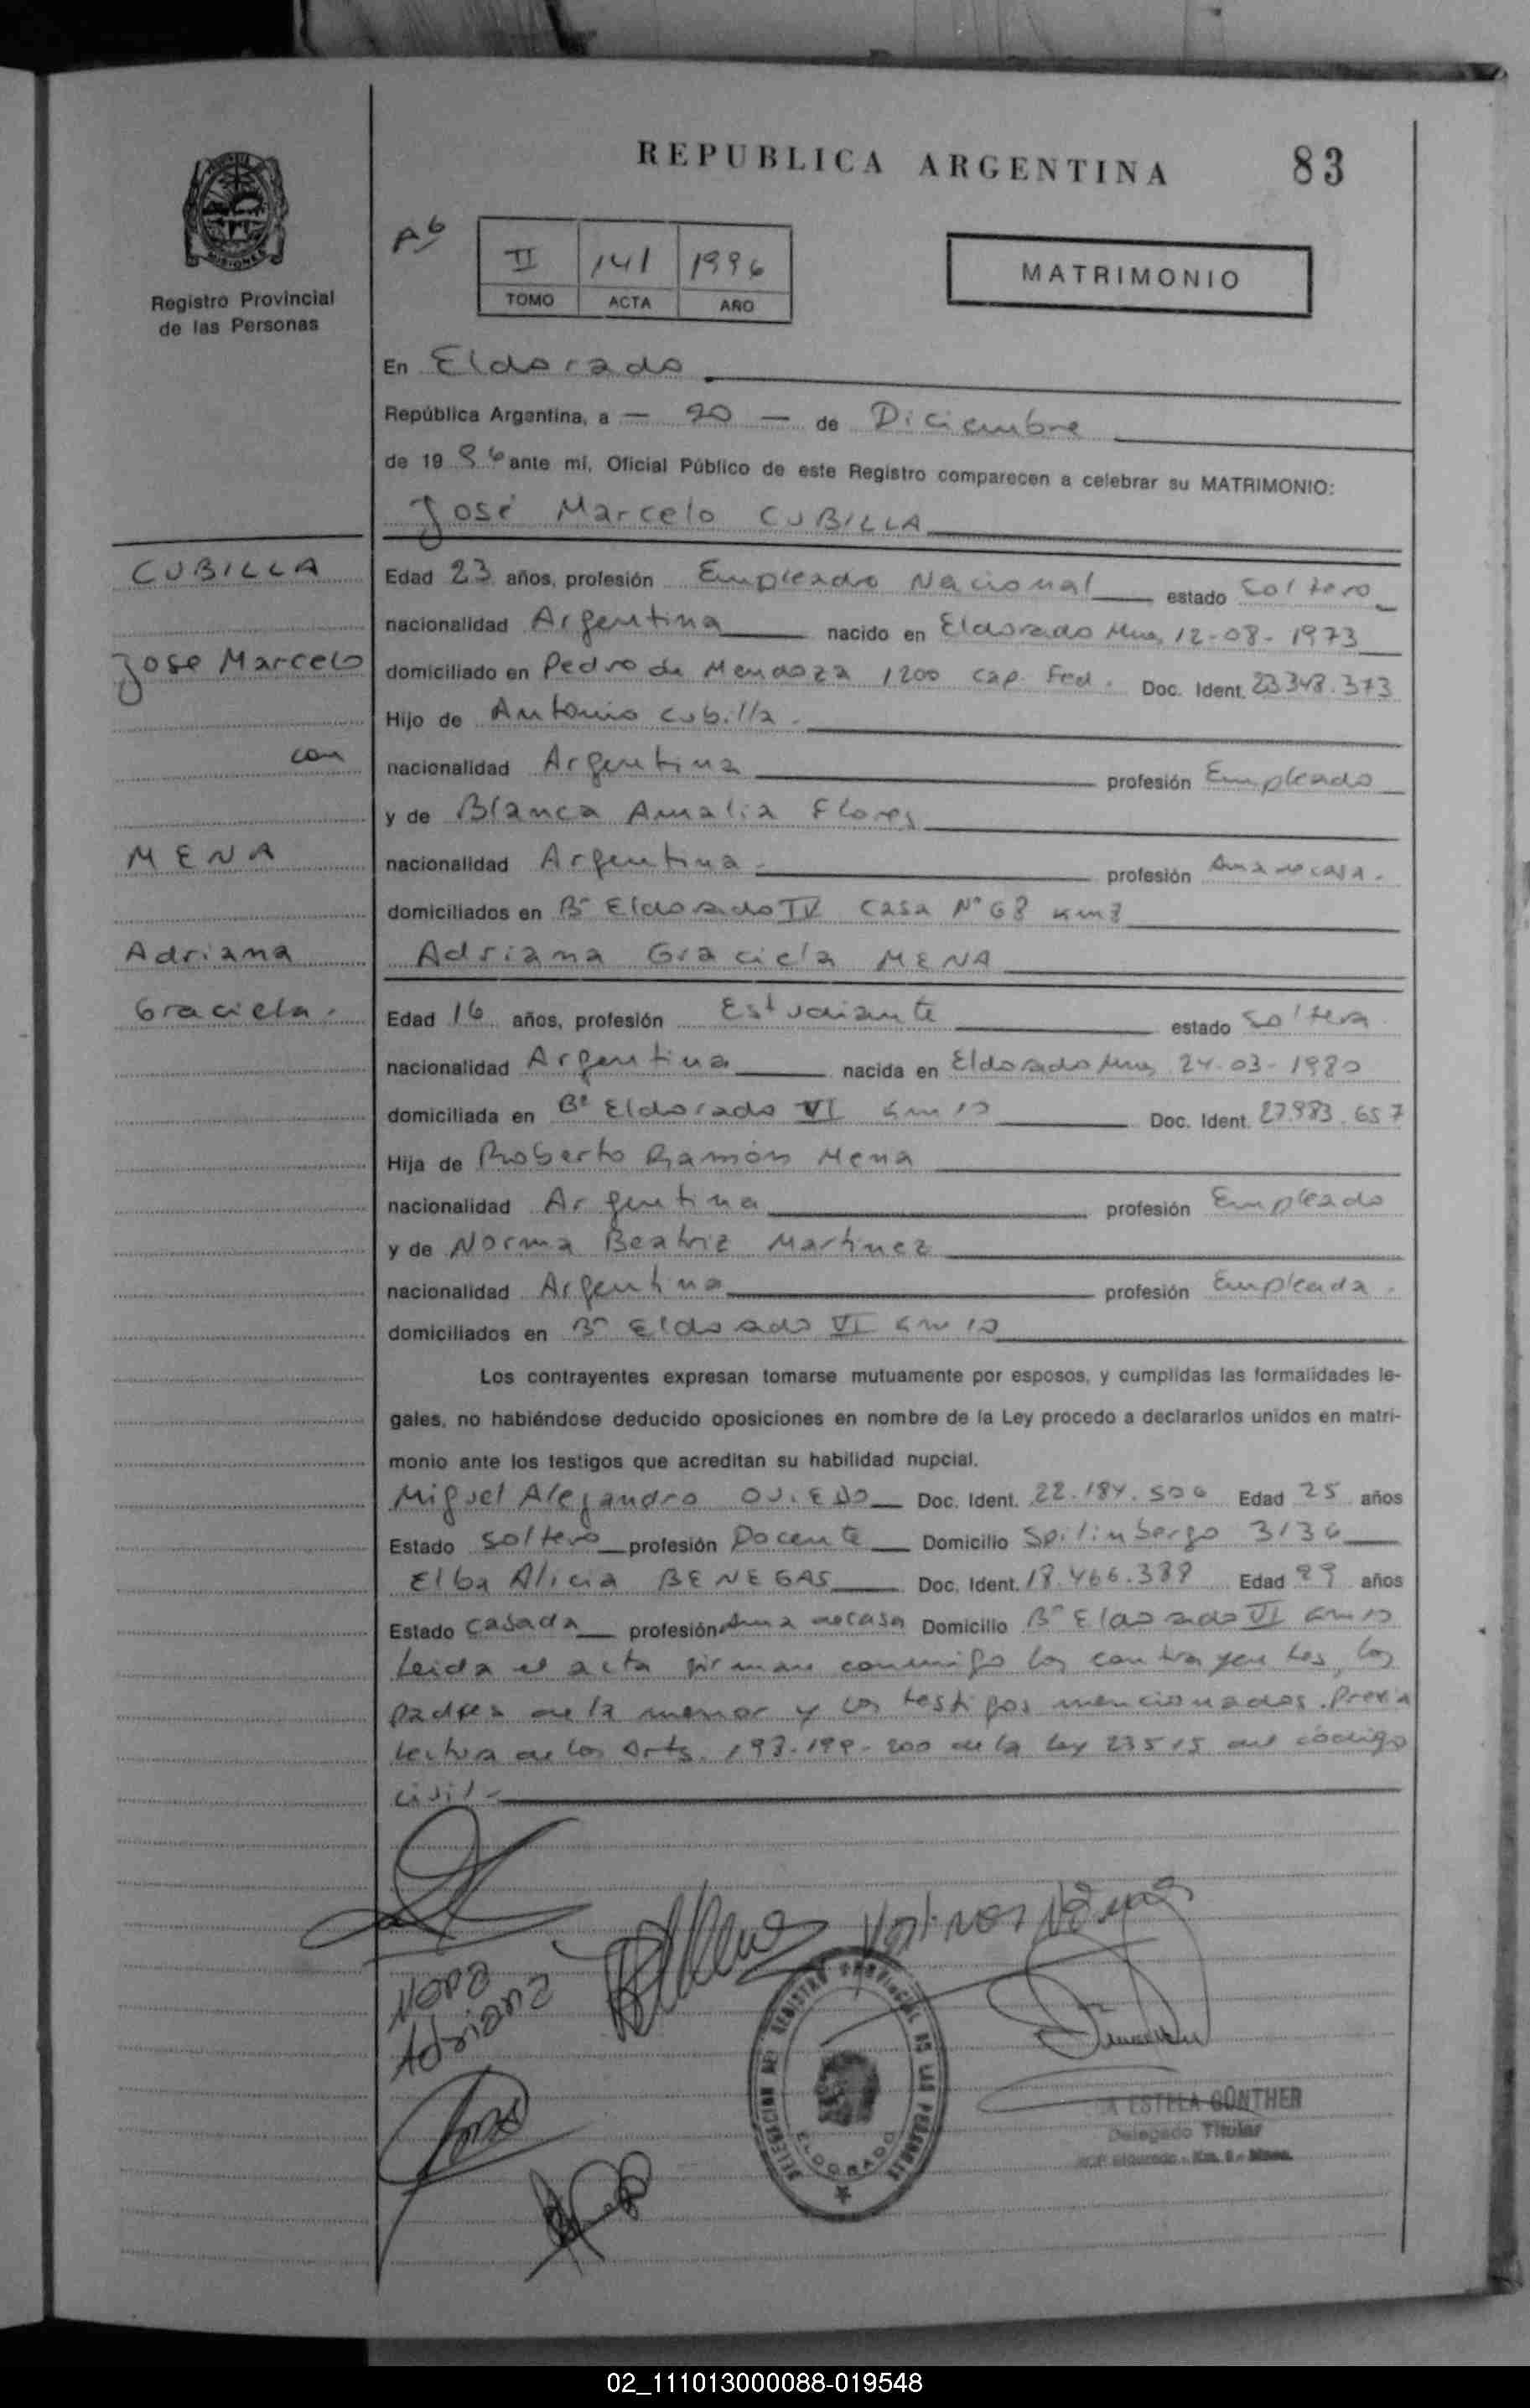 REPUBLICA ARGENTINA
83
MISIONES
Registro Provincial
de las Personas
II 141 1996
TOMO ACTA AÑO
MATRIMONIO
En Eldorado
República Argentina, a — 20 — de Diciembre
de 19 96 ante mí, Oficial Público de este Registro comparecen a celebrar su MATRIMONIO:
José Marcelo CUBILLA
CUBILLA
Edad 23 años, profesión Empleado Nacional estado Soltero
nacionalidad Argentina nacido en Eldorado Mnes 12-08-1973
Jose Marcelo
domiciliado en Pedro de Mendoza 1200 Cap. Fed. Doc. Ident. 23.348.373
Hijo de Antonio Cubilla.
con
nacionalidad Argentina profesión Empleado
y de Blanca Amalia Flores
MENA
nacionalidad Argentina profesión Ama de casa.
domiciliados en Bº Eldorado IV Casa Nº 68 Km 8
Adriana
Adriana Graciela MENA
Graciela.
Edad 16 años, profesión Estudiante estado Soltera
nacionalidad Argentina nacida en Eldorado Mnes 24-03-1980
domiciliada en Bº Eldorado VI Km 10 Doc. Ident. 27.983.657
Hija de Roberto Ramón Mena
nacionalidad Argentina profesión Empleado
y de Norma Beatriz Martinez
nacionalidad Argentina profesión Empleada.
domiciliados en Bº Eldorado VI Km 10
Los contrayentes expresan tomarse mutuamente por esposos, y cumplidas las formalidades le-
gales, no habiéndose deducido oposiciones en nombre de la Ley procedo a declararlos unidos en matri-
monio ante los testigos que acreditan su habilidad nupcial.
Miguel Alejandro OVIEDO Doc. Ident. 22.184.506 Edad 25 años
Estado Soltero profesión Docente Domicilio Spilimbergo 3136
Elba Alicia BENEGAS Doc. Ident. 18.466.389 Edad años
Estado Casada profesión Ama de casa Domicilio Bº Eldorado VI Km 10
Leida el acta firman conmigo los contrayentes, los
padres de la menor y los testigos mencionados. Previa
lectura de los Arts. 198-199-200 de la Ley 23515 del código
civil.
Mena
Adriana
DELEGACION DEL REGISTRO PROVINCIAL DE LAS PERSONAS
ELDORADO
ESTELA GÜNTHER
Delegado Titular
02_111013000088-019548